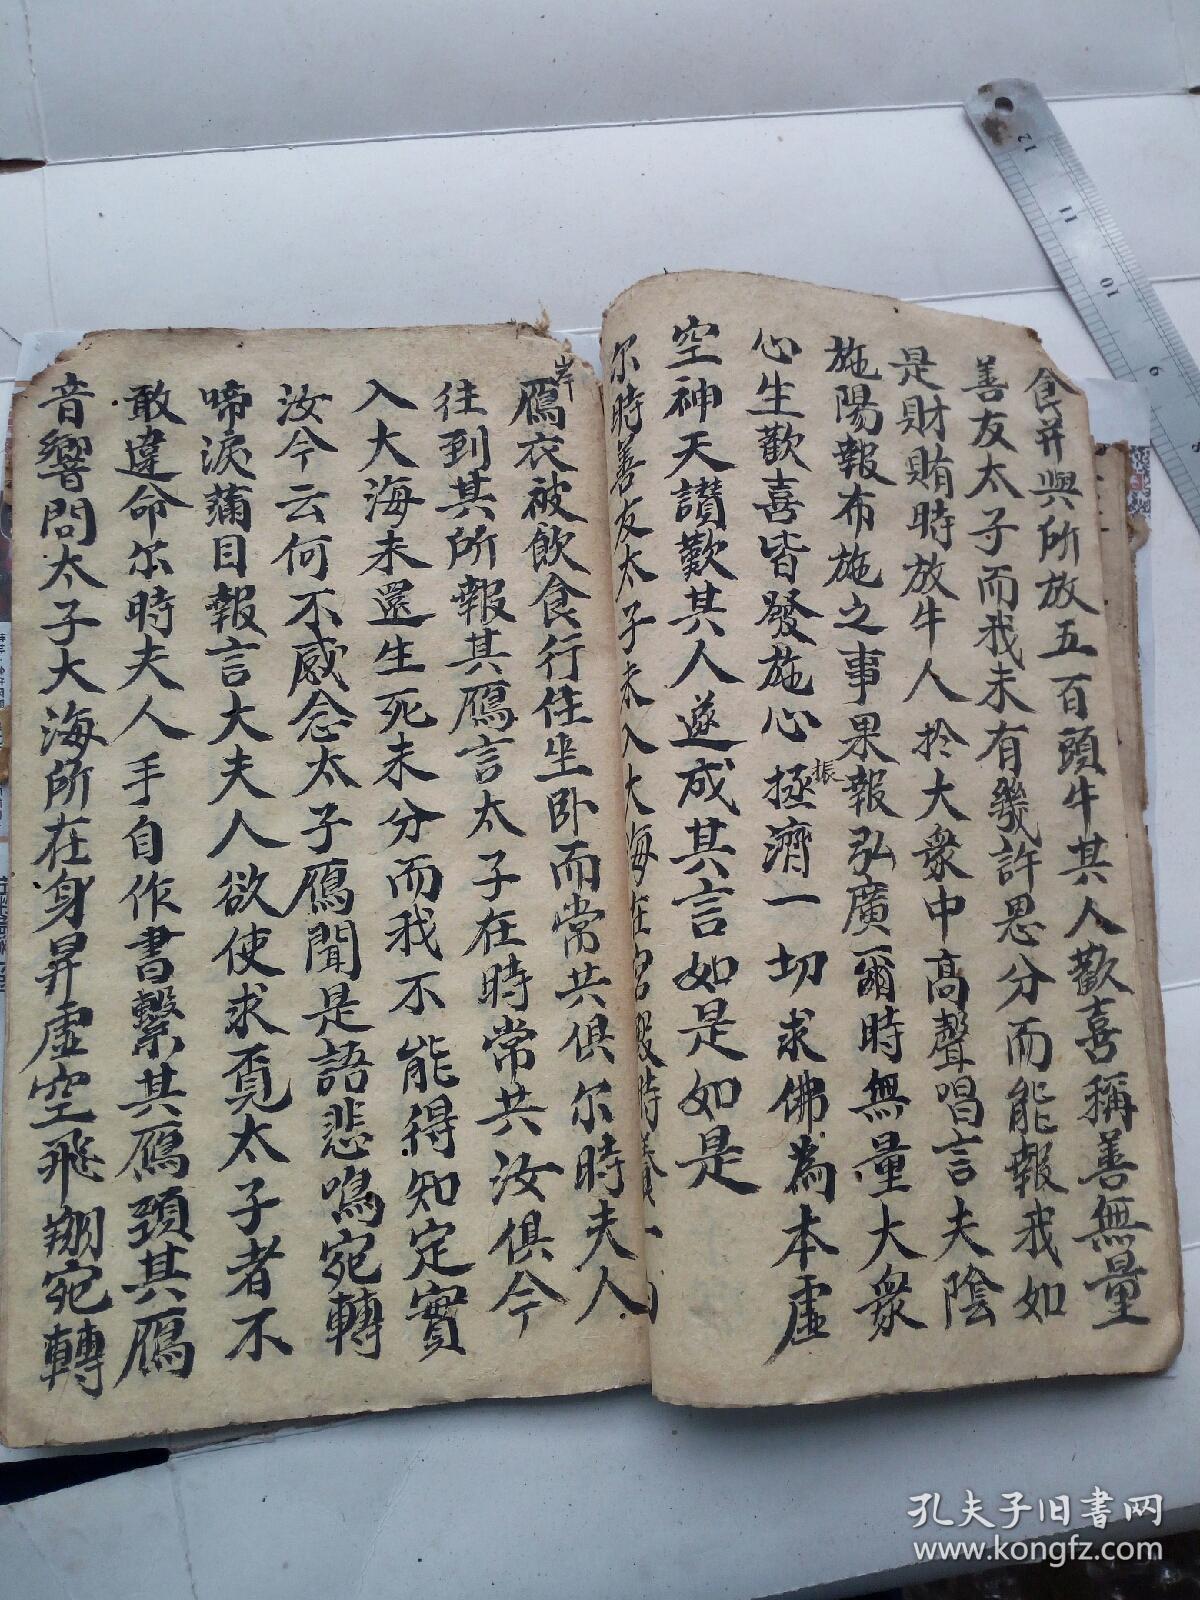 食并與所放五百頭牛其人歡喜稱善無量
善友太子而我未有幾許恩分而能報我如
是財賄時放牛人於大衆中高聲唱言夫陰
施陽報布施之事果報弘廣爾時無量大衆
心生歡喜皆發施心拯濟一切求佛為本虛
振
空神天讃歎其人遂成其言如是如是
尔時善友太子未入大海在宮殿時養一白
鴈衣被飲食行住坐卧而常共俱尔時夫人
岸
往到其所報其鴈言太子在時常共汝俱今
入大海未還生死未分而我不能得知定實
汝今云何不感念太子鴈聞是語悲鳴宛轉
啼淚蒲目報言大夫人欲使求覓太子者不
敢違命尔時夫人手自作書繫其鴈頸其鴈
音響問太子大海所在身昇虛空飛翔宛轉
12
11
10
9
孔夫子旧书网
www.kongfz.com